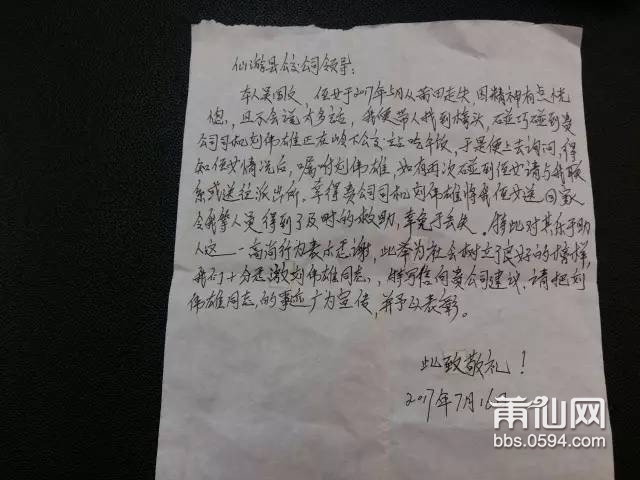 仙游县公交公司领导：
本人吴国文，侄女于2017年5月从莆田走失，因精神有点恍
惚，且不会说太多话，我便带人找到榜头，碰巧碰到贵
公司司机刘伟雄正在岭下公交站吃午饭，于是便上去询问，得
知侄女情况后，嘱咐刘伟雄，如有再次碰到侄女请与我联
系或送往派出所。幸得贵公司司机刘伟雄将我侄女送回家
令我挚人更得到了及时的救助，幸免于丢失。特此对其乐于助
人这一高尚行为表示感谢，此举为社会树立了良好的榜样，
我们十分感激刘伟雄同志，特写信向贵公司建议，请把刘
伟雄同志，的事迹广为宣传，并予以表彰。
此致敬礼！
2017年7月16
莆仙网
bbs.0594.com